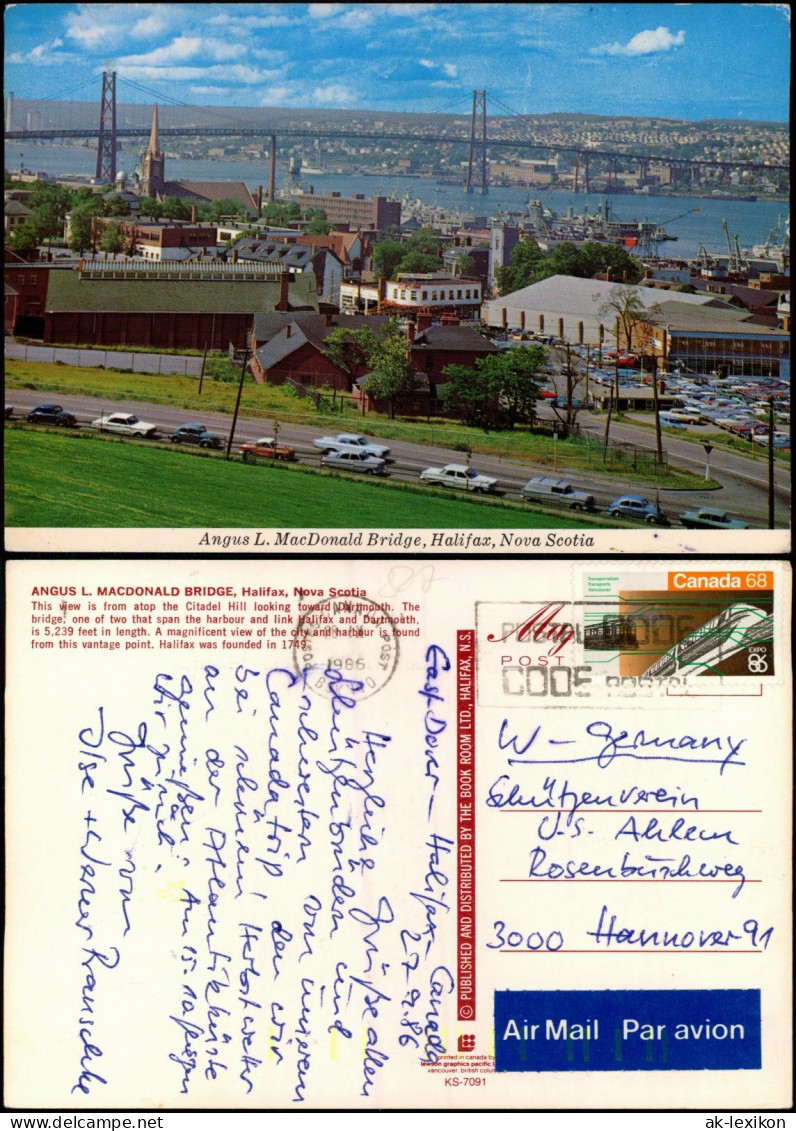 Angus L. MacDonald Bridge, Halifax, Nova Scotia
ANGUS L. MACDONALD BRIDGE, Halifax, Nova Scotia
This view is from atop the Citadel Hill looking toward Dartmouth. The
bridge, one of two that span the harbour and link Halifax and Dartmouth,
is 5,239 feet in length. A magnificent view of the city and harbour is found
from this vantage point. Halifax was founded in 1749.
87
CANADA
1986
POSTAL CODE
CODE POSTAL
May
POST
Transportation
Transports
Vancouver
Canada 68
EXPO
86
East Dover – Halifax – Canada
27.9.86
Herzliche Grüße allen
Schützenbrüdern und
schwestern von unserem
Canadatrip den wir
bei schönem Herbstwetter
an der Atlantikküste
genießen. Am 15.10 fliegen
wir zurück.
Grüße von
Ilse + Werner
© PUBLISHED AND DISTRIBUTED BY THE BOOK ROOM LTD., HALIFAX, N.S.
W – Germany
Schützenverein
v.S. Ahlem
Rosenbuschweg
3000 Hannover-91
Air Mail Par avion
printed in canada by
lawson graphics pacific
vancouver, british
KS-7091
ak-lexikon
www.delcampe.net